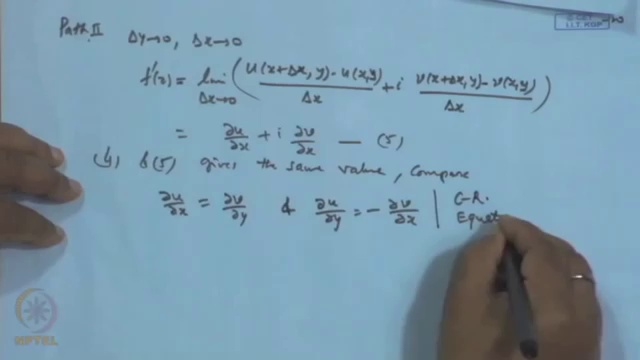 Path II Δy→0, Δx→0
f'(z) = lim Δx→0 ( u(x+Δx, y) - u(x,y) / Δx + i v(x+Δx, y) - v(x,y) / Δx )
= ∂u/∂x + i ∂v/∂x — (5)
(4) & (5) gives the same value, Compare
∂u/∂x = ∂v/∂y & ∂u/∂y = - ∂v/∂x | C-R.
Equat
I.I.T. KGP
NPTEL